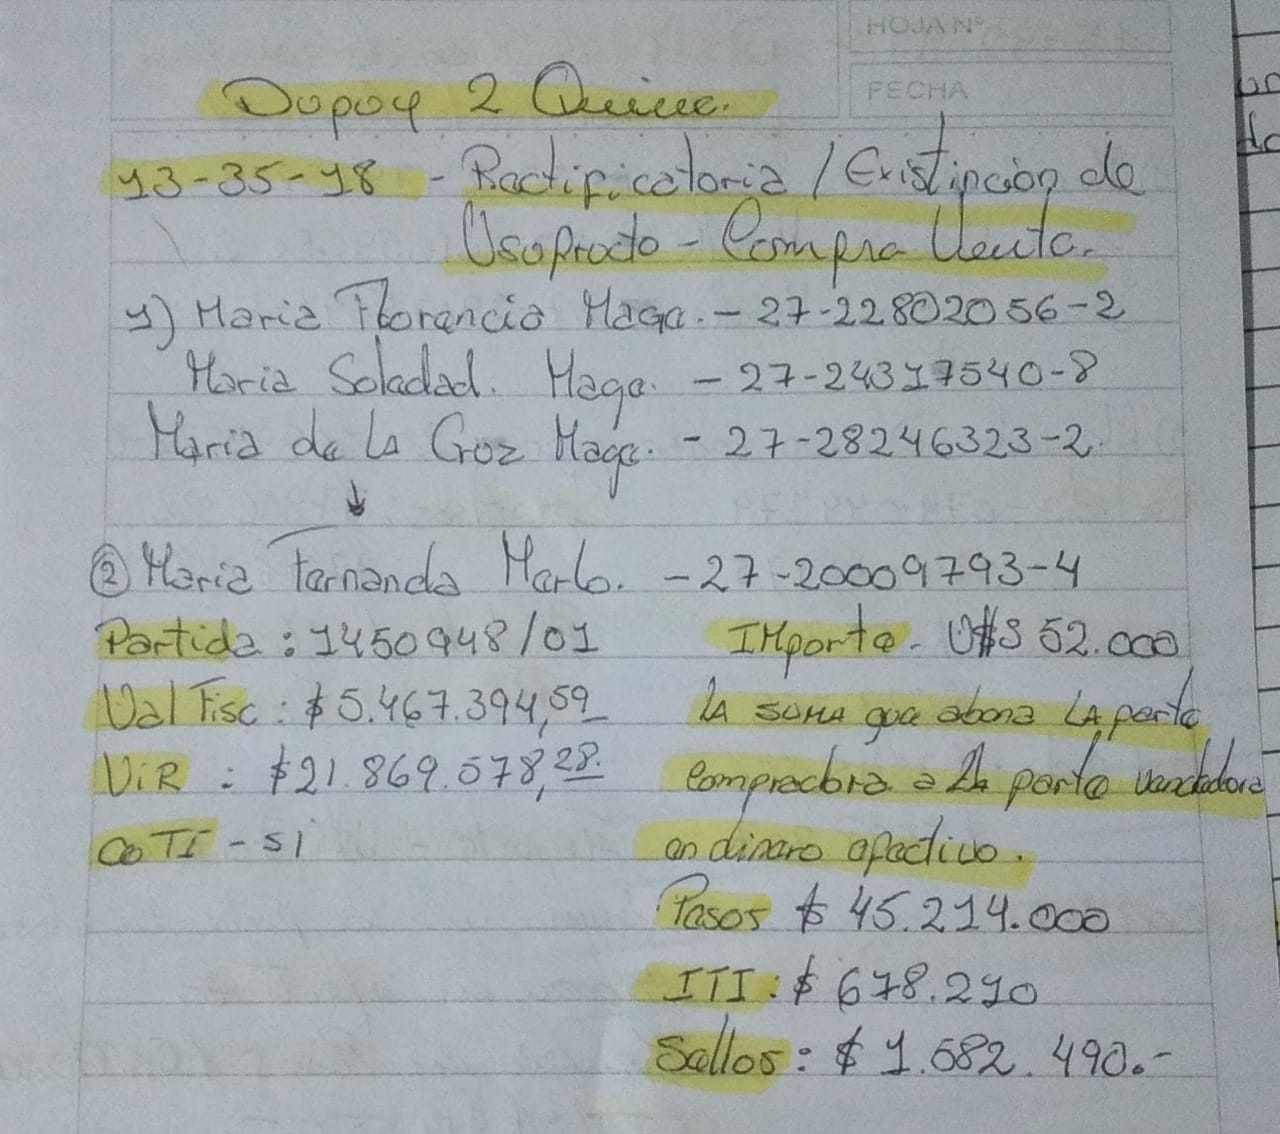 HOJA Nº
FECHA
Dupoy 2 Quiec.
13-35-18 - Rectificatoria / Existinción de
Usofructo - Compra Venta.
1) Maria Florencia Maga. - 27-22802056-2
Maria Soledad. Maga. - 27-24317540-8
Maria de la Cruz Maga. - 27-28246323-2.
② Maria Fernanda Merlo. - 27-20009793-4
Partida : 1450948/01 IMporte. U$S 52.000
Val Fisc : $ 5.467.394,59 LA SUMA que abona LA parte
ViR : $21.869.578,28. compradora a la parte vendedora
CoTI - SI en dinero efectivo.
Pesos $ 45.214.000
ITI : $ 678.210
Sellos : $ 1.682.490.-